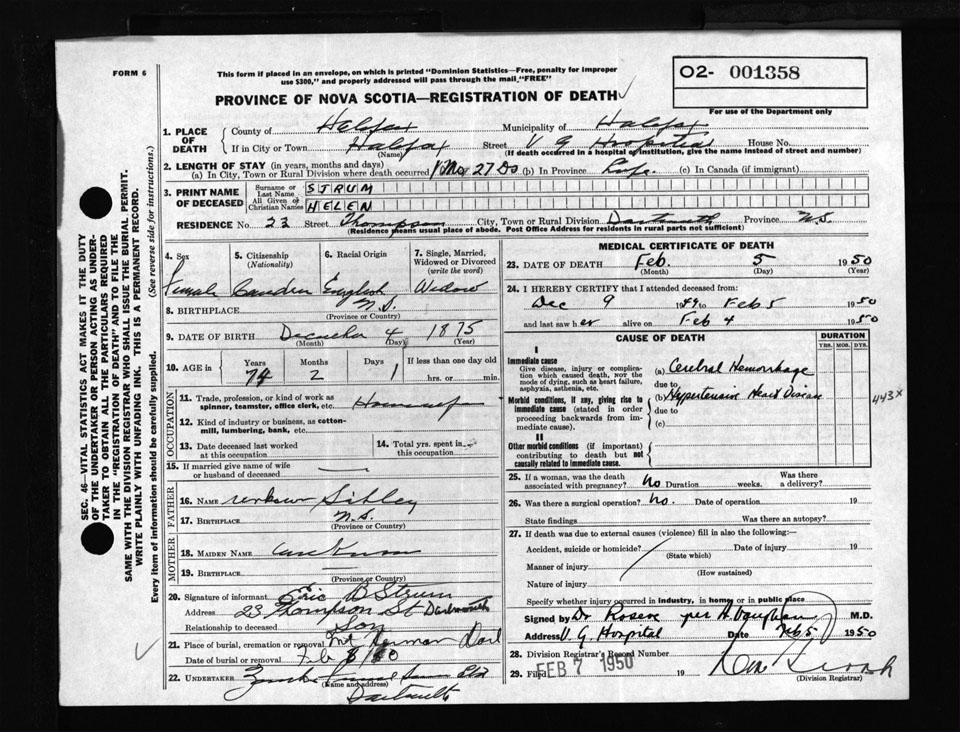 FORM 6
This form if placed in an envelope, on which is printed "Dominion Statistics—Free, penalty for improper
use $300," and properly addressed will pass through the mail, "FREE"
O2- 001358
For use of the Department only
PROVINCE OF NOVA SCOTIA—REGISTRATION OF DEATH
1. PLACE OF DEATH
County of Halifax Municipality of Halifax
If in City or Town Halifax Street V G Hospital House No.
(Name) (If death occurred in a hospital or institution, give the name instead of street and number)
2. LENGTH OF STAY (in years, months and days)
(a) In City, Town or Rural Division where death occurred 1 Mo 27 Ds (b) In Province Life (c) In Canada (if immigrant)
3. PRINT NAME OF DECEASED
Surname or Last Name STRUM
All Given or Christian Names HELEN
RESIDENCE No. 23 Street Thompson City, Town or Rural Division Dartmouth Province N.S.
(Residence means usual place of abode. Post Office Address for residents in rural parts not sufficient)
4. Sex 5. Citizenship (Nationality) 6. Racial Origin 7. Single, Married, Widowed or Divorced (write the word)
Female English Widow
8. BIRTHPLACE N.S.
(Province or Country)
9. DATE OF BIRTH December 4 1875
(Month) (Day) (Year)
10. AGE in Years Months Days If less than one day old
74 2 1 hrs. or min.
OCCUPATION
11. Trade, profession or kind of work as spinner, teamster, office clerk, etc.
12. Kind of industry or business, as cotton-mill, lumbering, bank, etc.
13. Date deceased last worked at this occupation
14. Total yrs. spent in this occupation
15. If married give name of wife or husband of deceased
FATHER
16. NAME Sibley
17. BIRTHPLACE N.S.
(Province or Country)
MOTHER
18. MAIDEN NAME unknown
19. BIRTHPLACE
(Province or Country)
20. Signature of informant Eric B Strum
Address 23 Thompson St Dartmouth
Relationship to deceased Son
21. Place of burial, cremation or removal Mt Herman Dart
Date of burial or removal Feb
22. UNDERTAKER
(Name and address)
Dartmouth
MEDICAL CERTIFICATE OF DEATH
23. DATE OF DEATH Feb. 5 1950
(Month) (Day) (Year)
24. I HEREBY CERTIFY that I attended deceased from:
Dec 9 1949 to Feb 5 1950
and last saw her alive on Feb 4 1950
CAUSE OF DEATH DURATION
YRS. MOS. DYS.
I
Immediate cause
Give disease, injury or complication which caused death, not the mode of dying, such as heart failure, asphyxia, asthenia, etc.
(a) Cerebral Hemorrhage
due to
Morbid conditions, if any, giving rise to immediate cause (stated in order proceeding backwards from immediate cause).
(b) Hypertensive Heart Disease
443X
due to
(c)
II
Other morbid conditions (if important) contributing to death but not causally related to immediate cause.
25. If a woman, was the death associated with pregnancy? No Duration weeks. Was there a delivery?
26. Was there a surgical operation? No. Date of operation 19
State findings Was there an autopsy?
27. If death was due to external causes (violence) fill in also the following:—
Accident, suicide or homicide? Date of injury 19
(State which)
Manner of injury
(How sustained)
Nature of injury
Specify whether injury occurred in industry, in home, or in public place
Signed by Dr Rosen per M.D.
Address V. G. Hospital Date Feb 5 1950
28. Division Registrar's Record Number
29. Filed FEB 7 1950 19
(Division Registrar)
SEC. 46—VITAL STATISTICS ACT MAKES IT THE DUTY
OF THE UNDERTAKER OR PERSON ACTING AS UNDER-
TAKER TO OBTAIN ALL THE PARTICULARS REQUIRED
IN THE "REGISTRATION OF DEATH" AND TO FILE THE
SAME WITH THE DIVISION REGISTRAR WHO SHALL ISSUE THE BURIAL PERMIT.
WRITE PLAINLY WITH UNFADING INK. THIS IS A PERMANENT RECORD.
Every item of information should be carefully supplied. (See reverse side for instructions.)